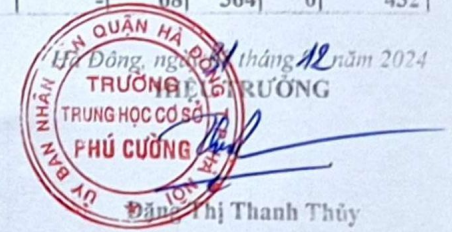 68 564 0 432
Hà Đông, ngày 31 tháng 12 năm 2024
HIỆU TRƯỞNG
ỦY BAN NHÂN DÂN QUẬN HÀ ĐÔNG T.P HÀ NỘI
TRƯỜNG
TRUNG HỌC CƠ SỞ
PHÚ CƯỜNG
Đặng Thị Thanh Thủy